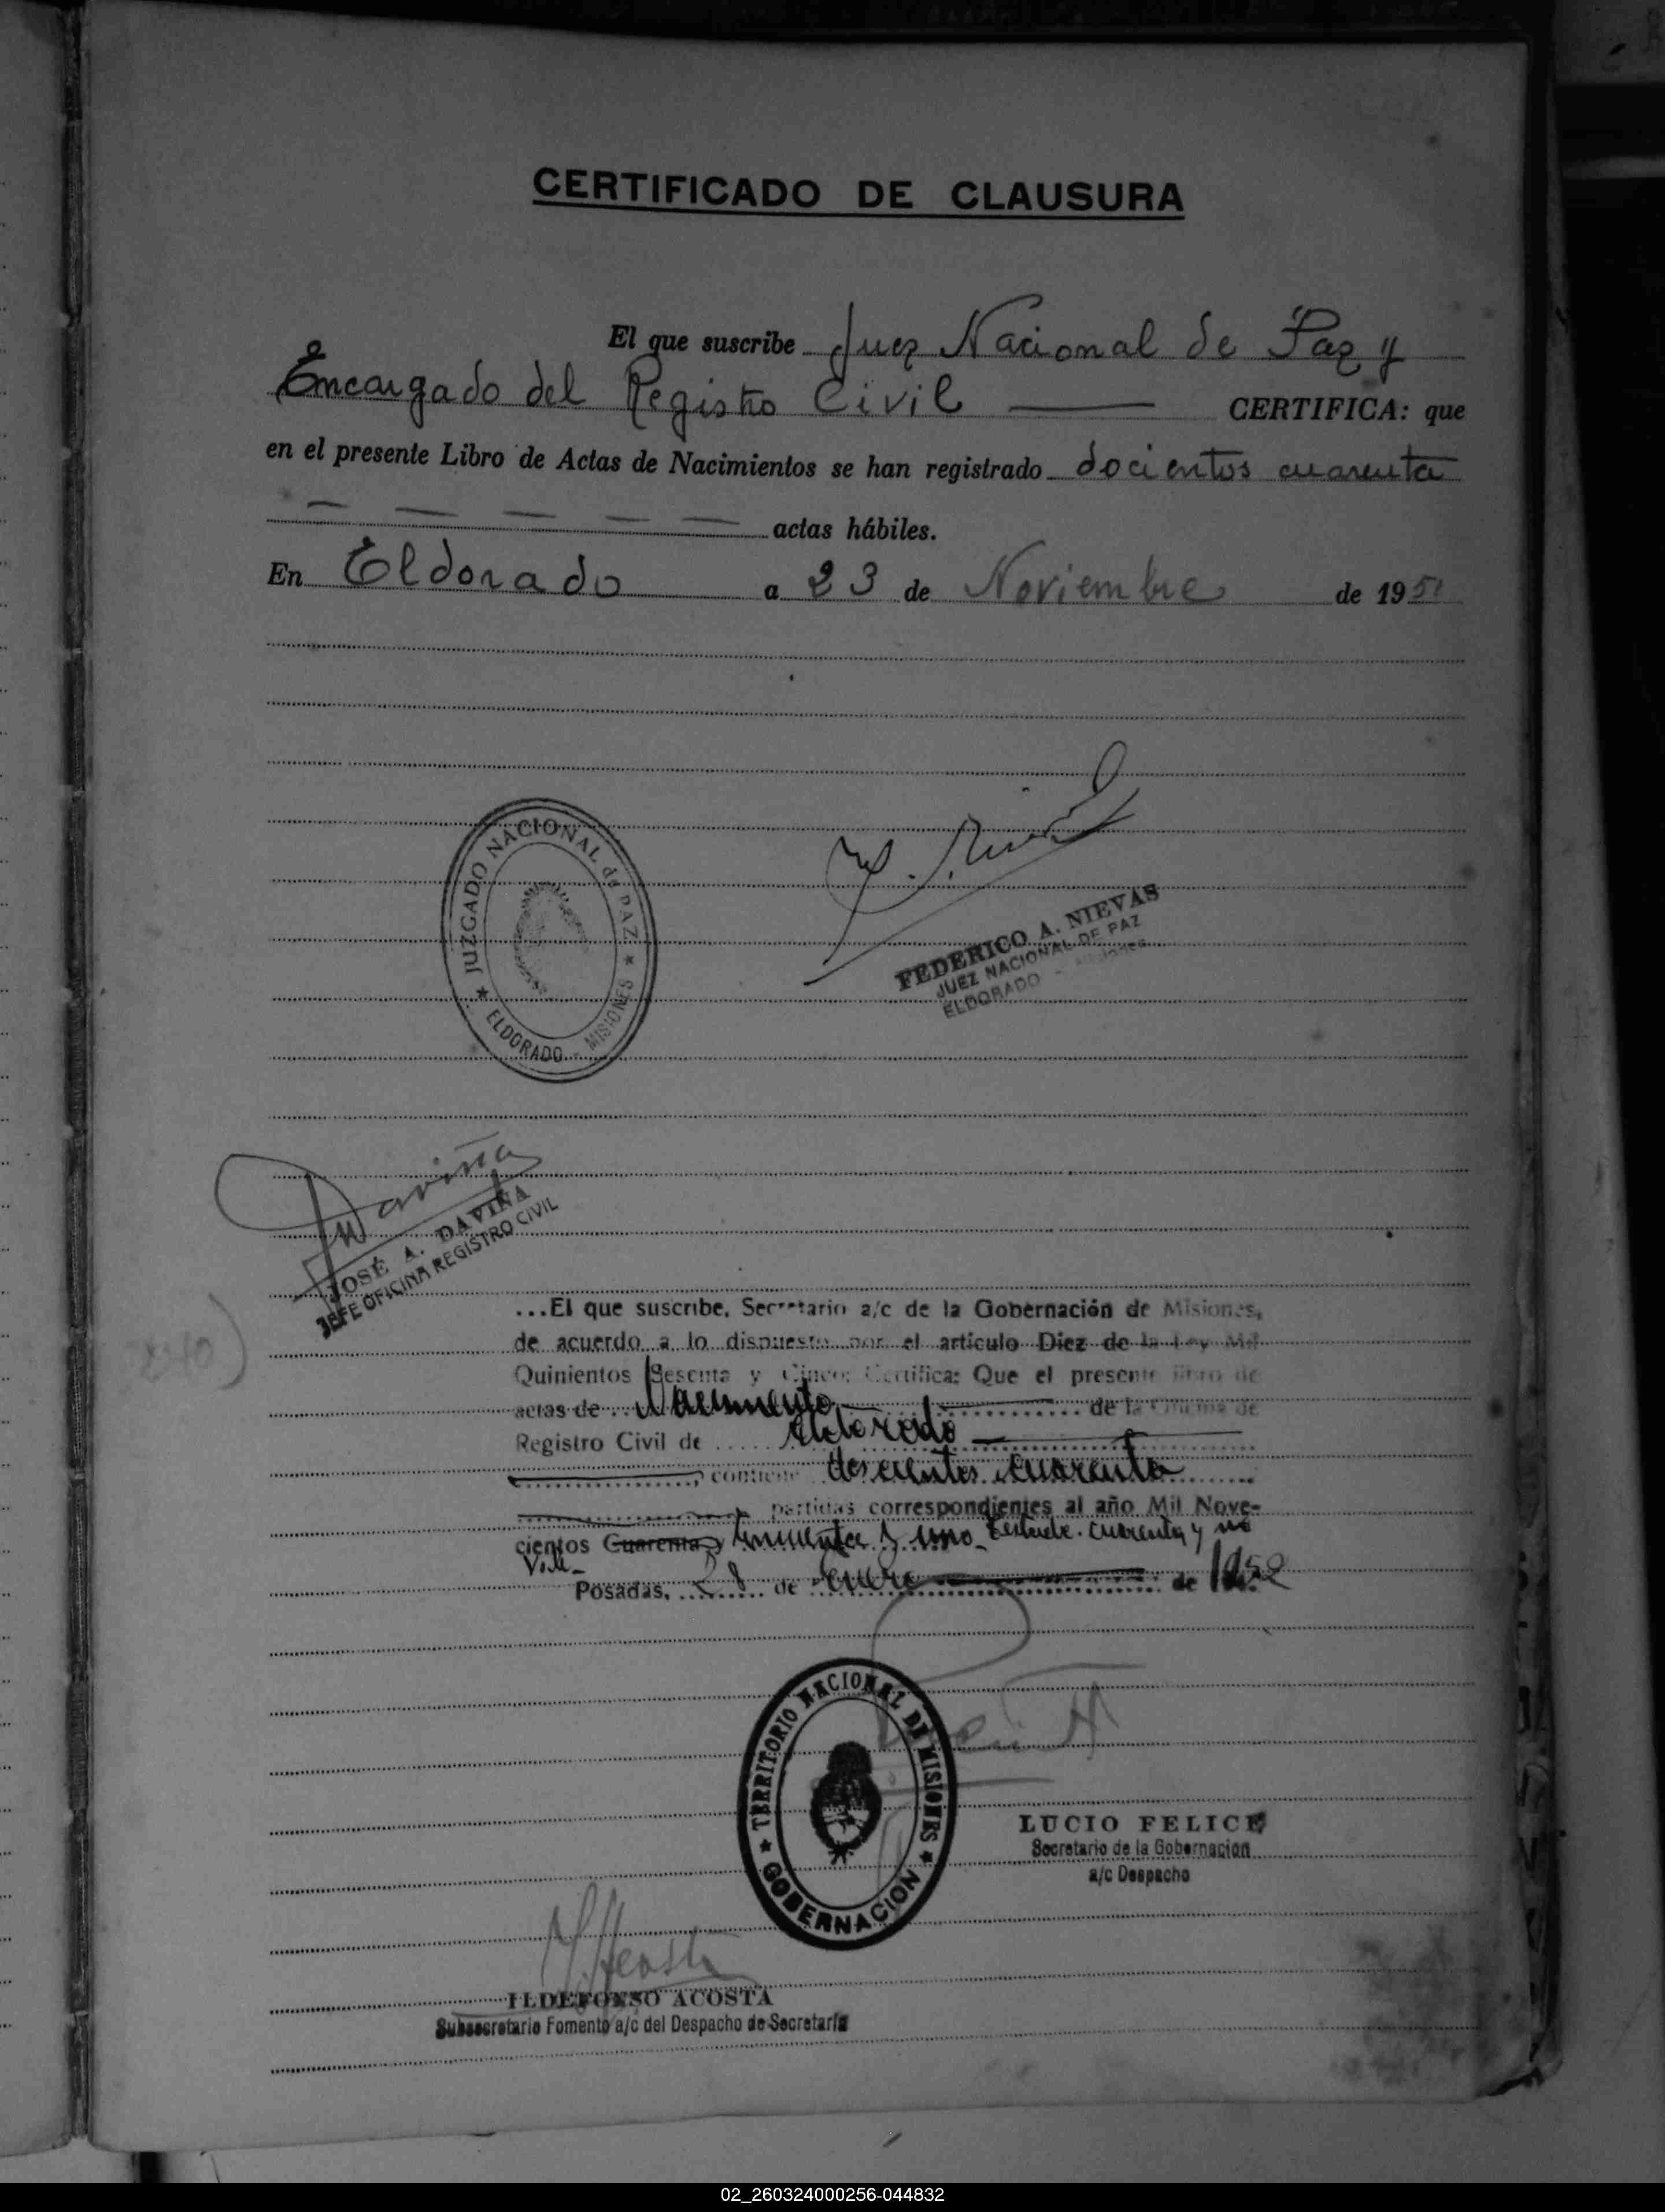 CERTIFICADO DE CLAUSURA
El que suscribe Juez Nacional de Paz y
Encargado del Registro Civil —— CERTIFICA: que
en el presente Libro de Actas de Nacimientos se han registrado docientos cuarenta
— — — — — actas hábiles.
En Eldorado a 23 de Noviembre de 1951
JUZGADO NACIONAL de PAZ
ELDORADO - MISIONES
FEDERICO A. NIEVAS
JUEZ NACIONAL DE PAZ
ELDORADO - Misiones
Daviña
JOSÉ A. DAVIÑA
JEFE OFICINA REGISTRO CIVIL
240)
...El que suscribe, Secretario a/c de la Gobernación de Misiones,
de acuerdo a lo dispuesto por el artículo Diez de la Ley Mil
Quinientos Sesenta y Cinco: Certifica: Que el presente libro de
actas de Nacimiento de la Oficina de
Registro Civil de Eldorado
contiene doscientos cuarenta
partidas correspondientes al año Mil Nove-
cientos Cuarenta y cincuenta y uno. Testado: cuarenta y no
Vale-
Posadas, 28 de enero de 1952
TERRITORIO NACIONAL DE MISIONES
GOBERNACION
LUCIO FELICE
Secretario de la Gobernacion
a/c Despacho
ILDEFONSO ACOSTA
Subsecretario Fomento a/c del Despacho de Secretaría
02_260324000256-044832